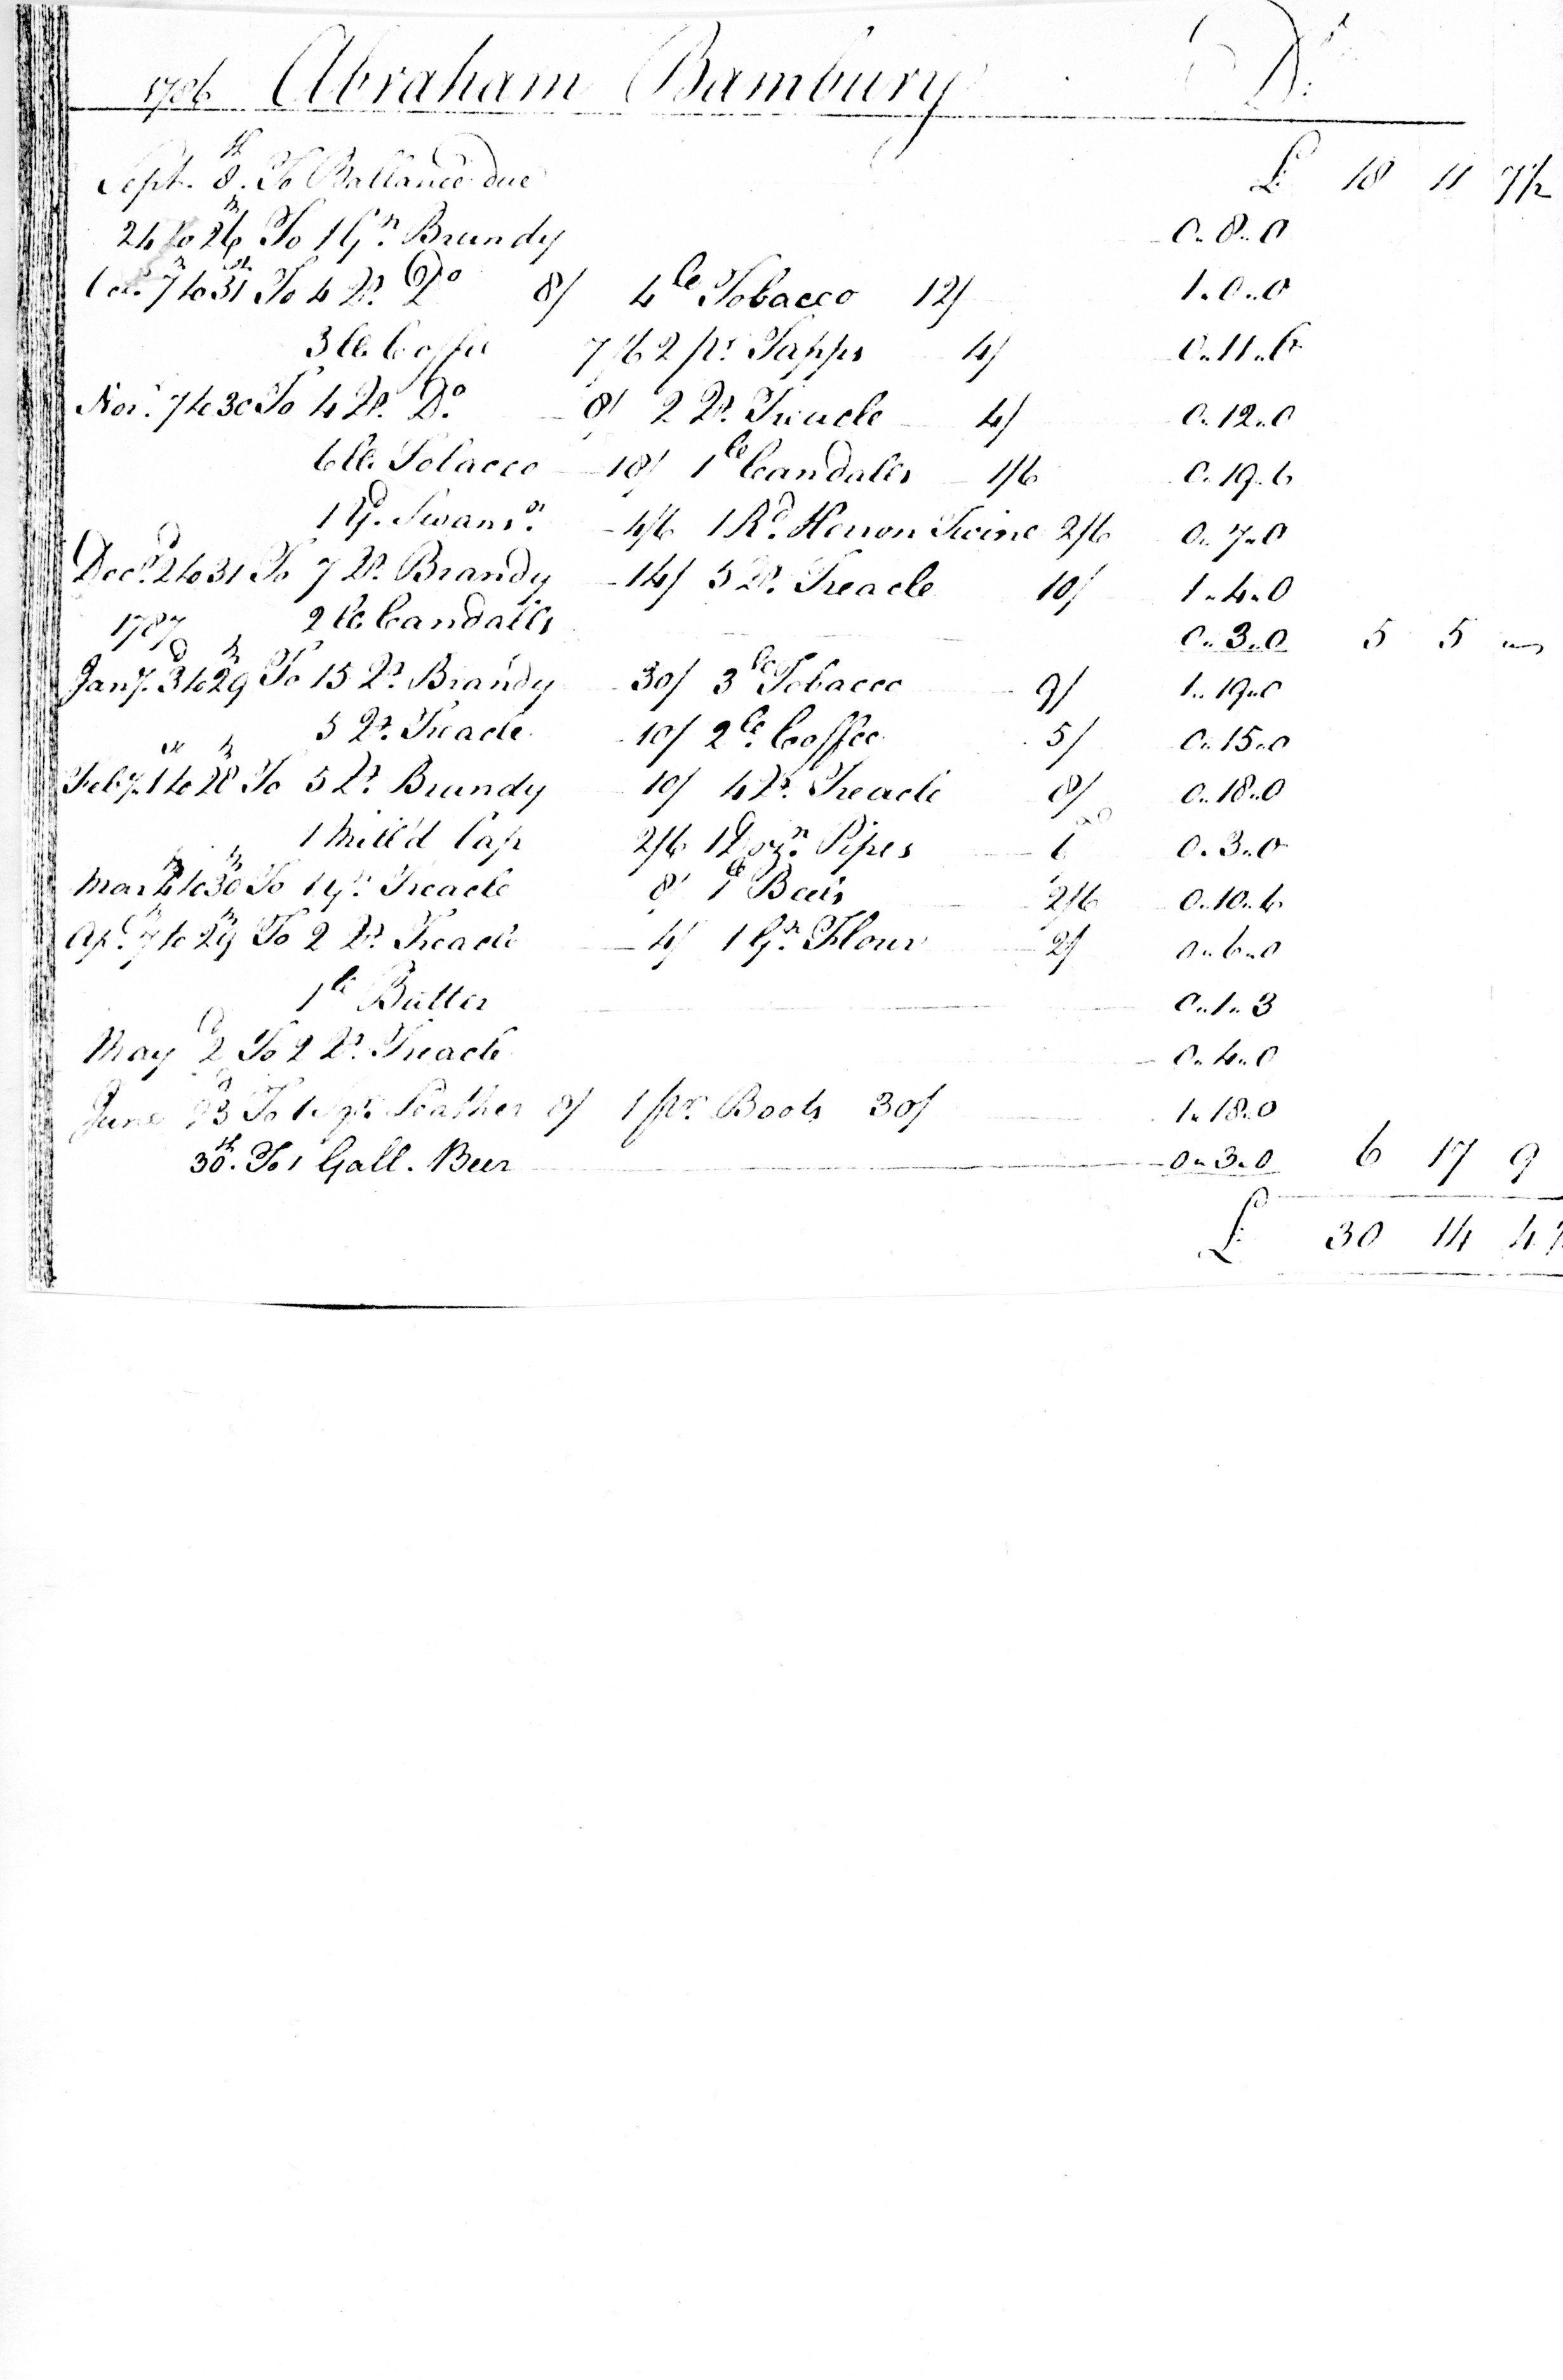 1786 Abraham Bambury Dr.
Sept. 8th. To Ballance due £ 18 11 7½
24 to 26th To 1 Gn. Brandy 0..8..0
Octr. 7th to 31st To 4 Qts. Do 8/ 4 lb Tobacco 12/ 1..0..0
3 lb. Coffee 7/6 2 pr. Tapps 4/ 0..11..6
Novr. 7 to 30 To 4 Qts. Do. 8/ 2 Qts. Treacle 4/ 0..12..0
6 lb. Tobacco 18/ 1 lb Candalls 1/6 0..19..6
1 Yd. Swansn. 4/6 1 Rd. Herron Twine 2/6 0..7..0
Decr. 2d to 31 To 7 Qts. Brandy 14/ 5 Qts. Treacle 10/ 1..4..0
1787 2 lb Candalls 0..3..0 5 5 "
Jany. 3d to 29th To 15 Qts. Brandy 30/ 3 lb Tobacco 9/ 1..19..0
5 Qts. Treacle 10/ 2 lb. Coffee 5/ 0..15..0
Feby. 1st to 28th To 5 Qts. Brandy 10/ 4 Qts. Treacle 8/ 0..18..0
1 Mill'd Cap 2/6 1 Dozn. Pipes 6 0..3..0
Mar 4th to 30th To 1 Gn. Treacle 8/ 1 lb 2/6 0..10..6
Apl. 7th to 29th To 2 Qts. Treacle 4/ 1 Gn. Flour 2/ 0..6..0
1 lb Butter 0..1..3
May 2d To 2 Qts. Treacle 0..4..0
June 23d To 1 Leather 8/ 1 pr. Boots 30/ 1..18..0
30th. To 1 Gall. Beer 0..3..0 6 17 9
£ 30 14 4½